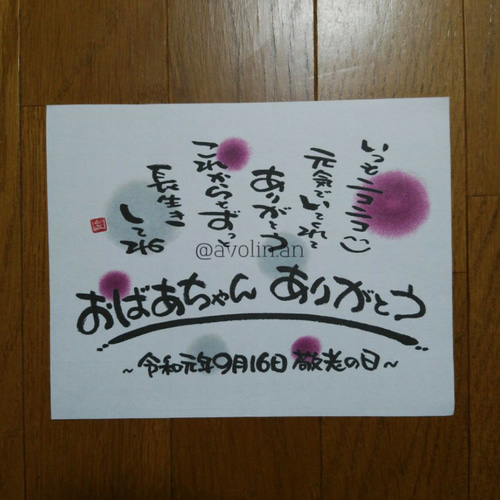 いつもニコニコ
元気でいてくれて
ありがとう
これからもずっと
長生き
してね
@avolin.an
おばあちゃん ありがとう
~令和元年9月16日 敬老の日~